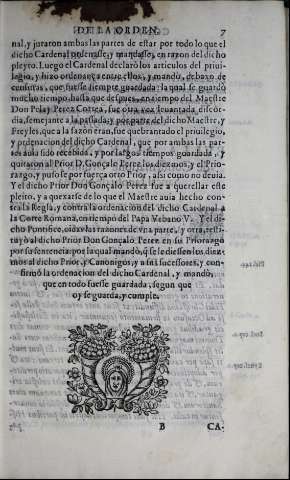 DE LA ORDEN. 7
nal, y juraron ambas las partes de estar por todo lo que el
dicho Cardenal ordenasse, y mandasse, en razon del dicho
pleyto. Luego el Cardenal declarò los articulos del priui-
legio, y hizo ordenança entre ellos, y mandò, debaxo de
censuras, que fuesse siempre guardada: la qual se guardò
mucho tiempo hasta que despues, en tiempo del Maestre
Don Pelay Perez Correa, fue otra vez leuantada discor-
dia, semejante a la passada: y por parte del dicho Maestre, y
Freyles, que a la sazon eran, fue quebrantado el priuilegio,
y ordenacion del dicho Cardenal, que por ambas las par-
tes auia sido recebida, y por largos tiempos guardada, y
quitaron al Prior D. Gonçalo Perez los diezmos, y el Prio-
razgo, y pusose por fuerça otro Prior, assi como no deuia.
Y el dicho Prior Don Gonçalo Perez fue a querellar este
pleito, y a quexarse de lo que el Maestre auia hecho con-
tra la Regla, y contra la ordenacion del dicho Cardenal a
la Corte Romana, en tiempo del Papa Vrbano V. Y el di-
cho Pontifice, oidas las razones de vna parte, y otra, resti-
tuyò al dicho Prior Don Gonçalo Perez en su Priorazgo
por su sentencia: por la qual mandò, q̃ se le diessen los diez-
mos al dicho Prior, y Canonigos, y a sus sucessores, y con-
firmò la ordenacion del dicho Cardenal, y mandò,
que en todo fuesse guardada, segun que
oy se guarda, y cumple.
B CA-